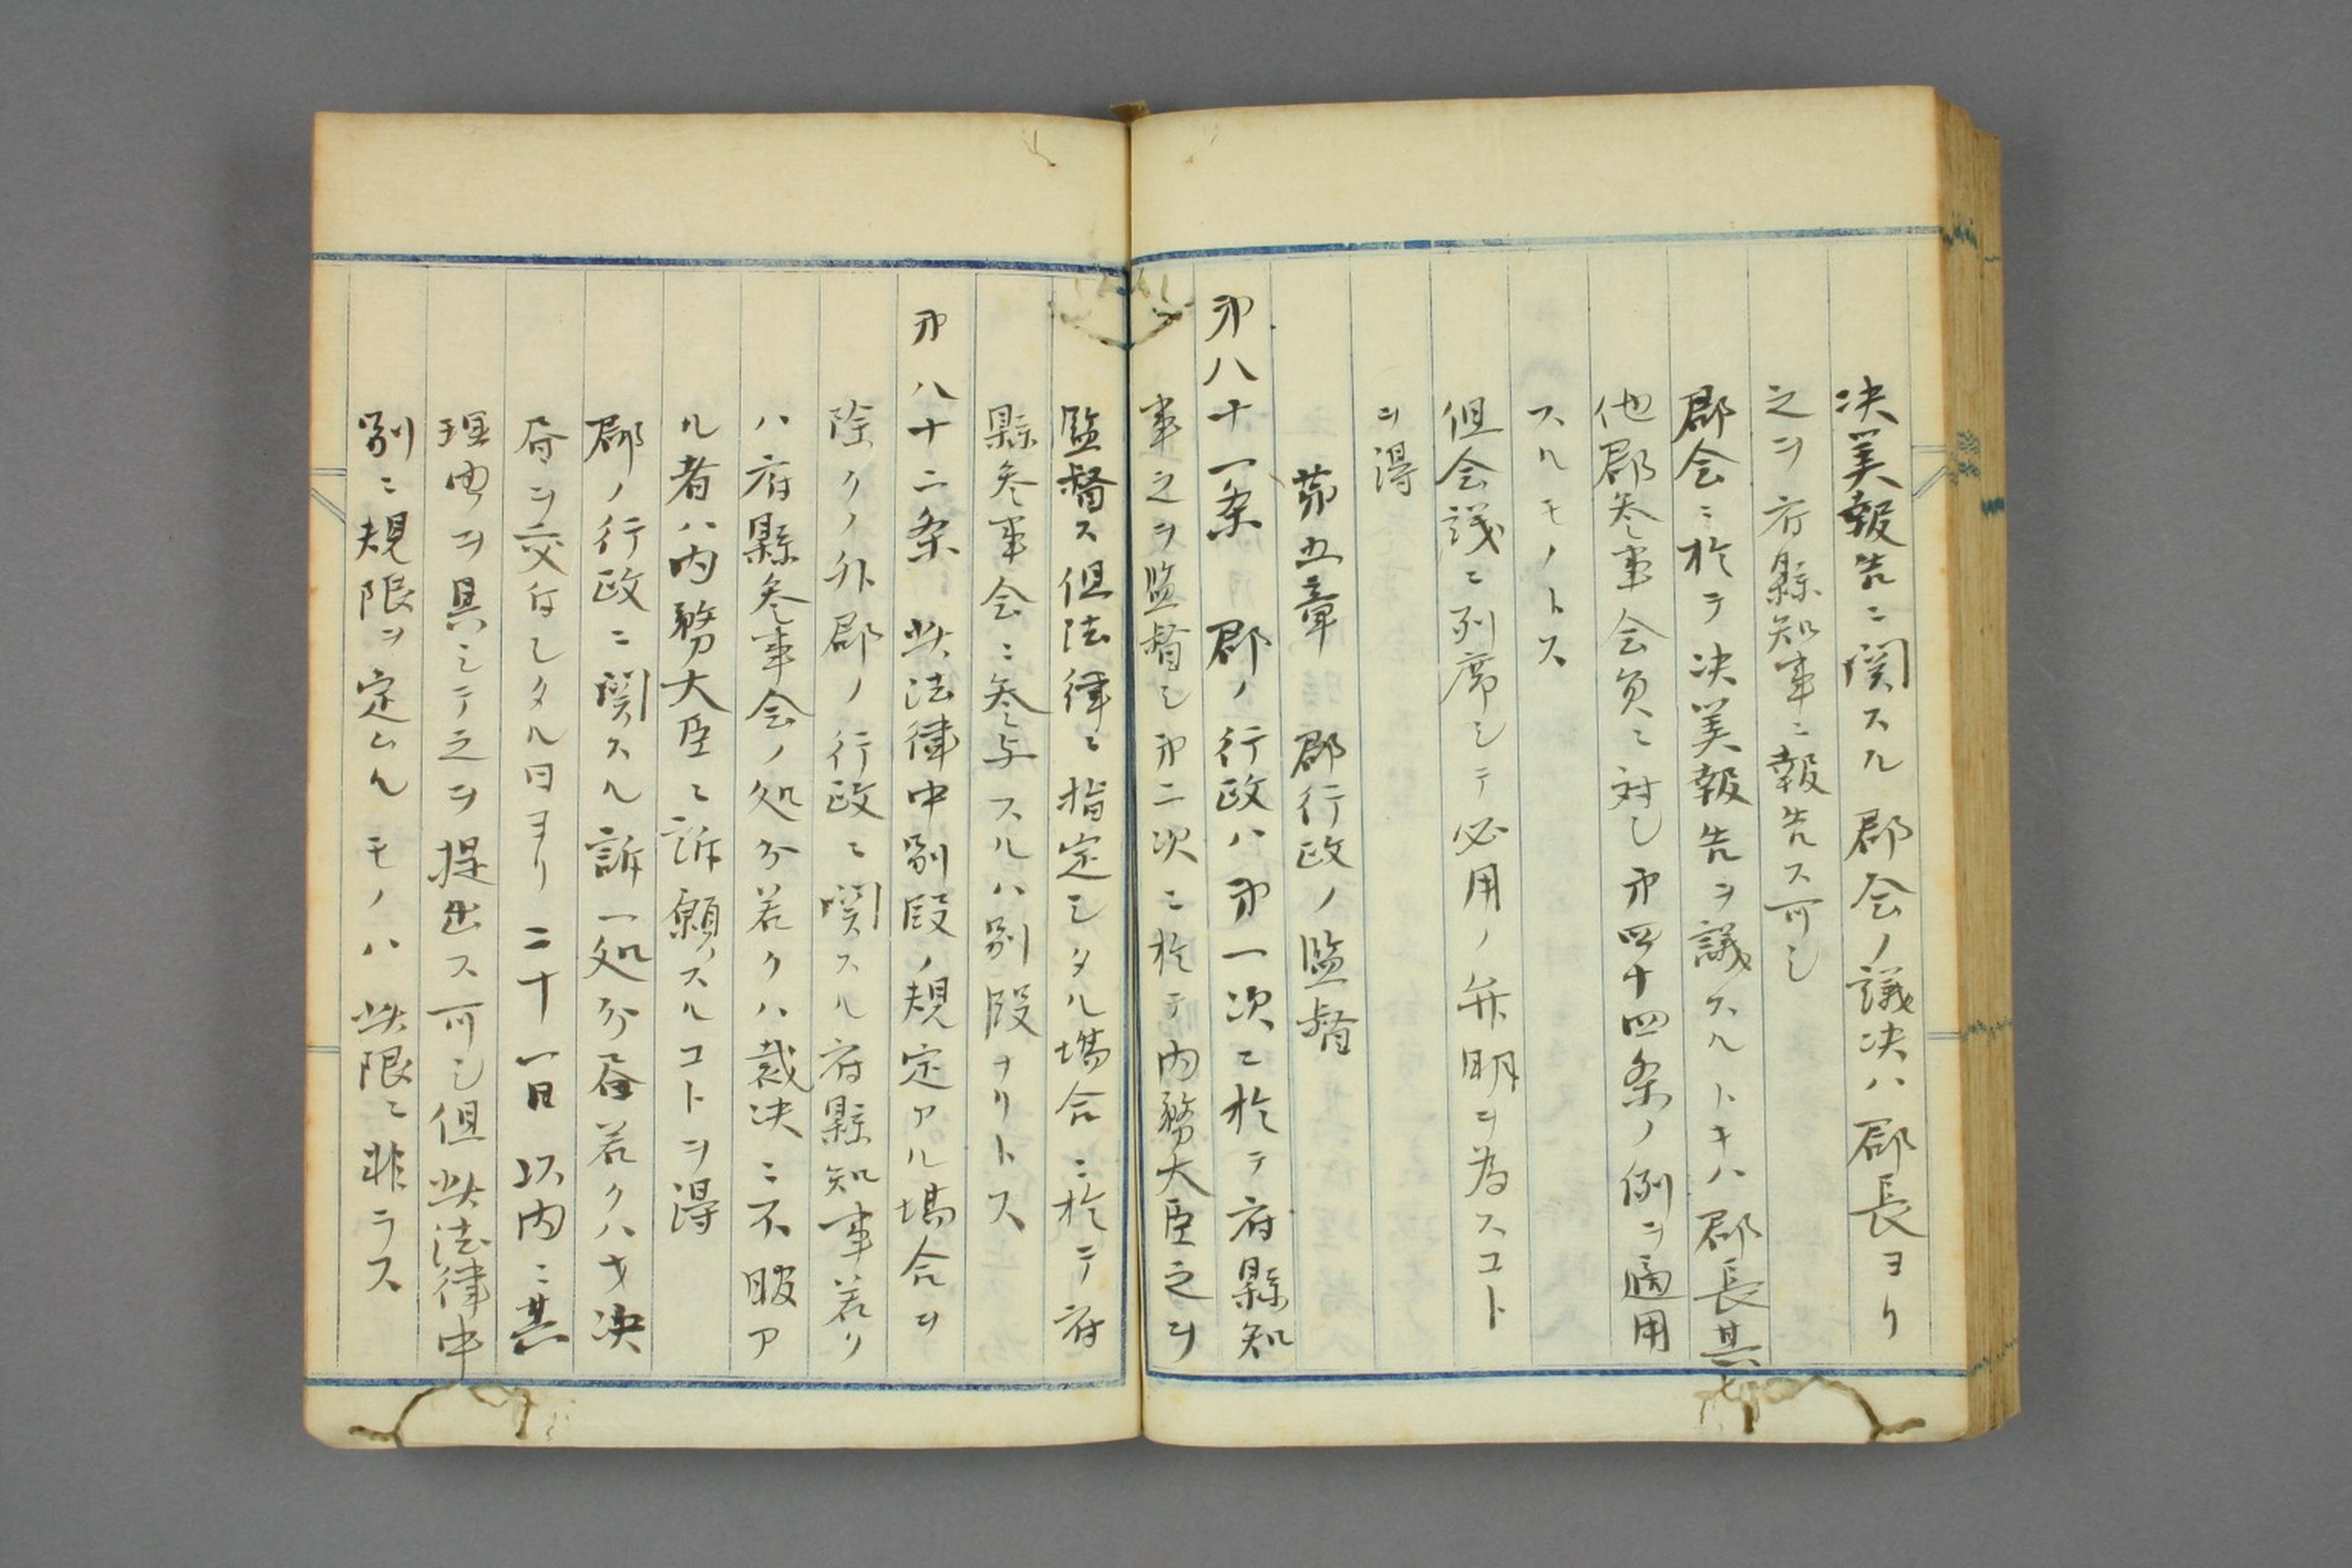 决算報告ニ関スル郡会ノ議决ハ郡長ヨリ
之ヲ府縣知事ニ報告ス可シ
郡会ニ於テ决算報告ヲ議スルトキハ郡長其
他郡参事会員ニ対シ第四十四条ノ例ヲ適用
スルモノトス
但会議ニ列席シテ必用ノ弁明ヲ為スコト
ヲ得
第五章 郡行政ノ監督
第八十一条 郡ノ行政ハ第一次ニ於テ府縣知
事之ヲ監督シ第二次ニ於テ内務大臣之ヲ
監督ス但法律ニ指定シタル塲合ニ於テ府
縣参事会ニ参与スルハ別段ナリトス
第八十二条 此法律中別段ノ規定アル塲合ヲ
除クノ外郡ノ行政ニ関スル府縣知事若ク
ハ府縣参事会ノ処分若クハ裁决ニ不服ア
ル者ハ内務大臣ニ訴願スルコトヲ得
郡ノ行政ニ関スル訴ハ処分書若クハ才决
書ヲ交付シタル日ヨリ二十一日以内ニ其
理由ヲ具シテ之ヲ提出ス可シ但此法律中
別ニ規限ヲ定ムルモノハ此限ニ非ラス